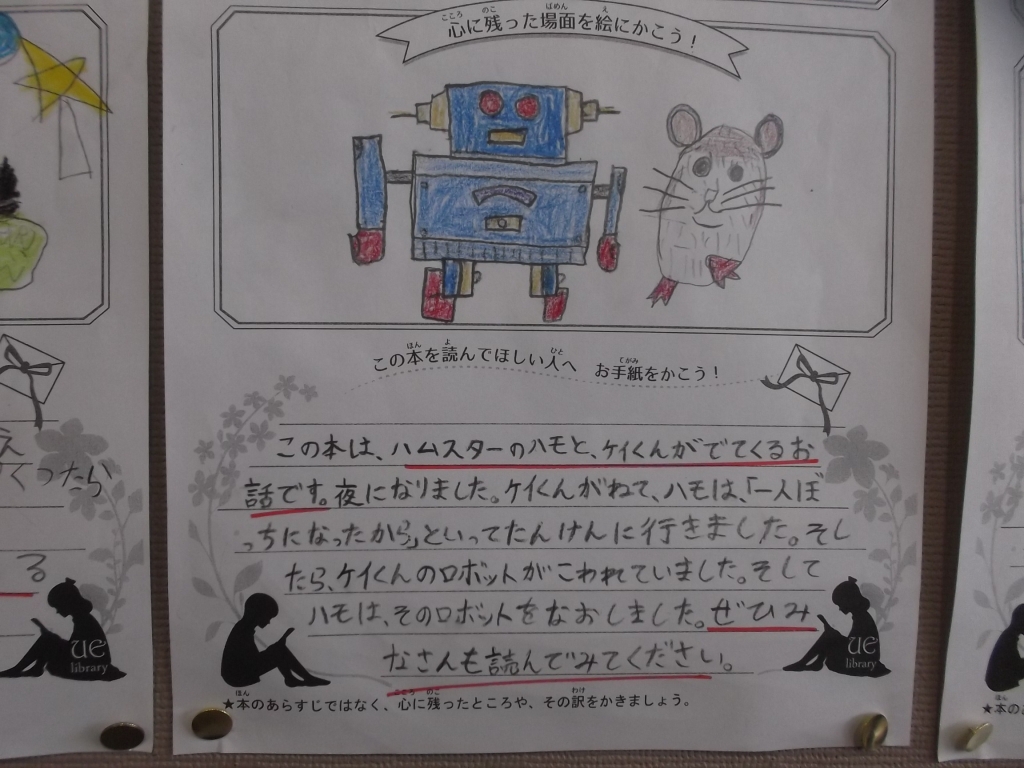 心に残った場面を絵にかこう！
この本を読んでほしい人へ お手紙をかこう！
この本は、ハムスターのハモと、ケイくんがでてくるお
話です。夜になりました。ケイくんがねて、ハモは、「一人ぼ
っちになったから」といってたんけんに行きました。そし
たら、ケイくんのロボットがこわれていました。そして
ハモは、そのロボットをなおしました。ぜひみ
なさんも読んでみてください。
★本のあらすじではなく、心に残ったところや、その訳をかきましょう。
ue
library
ue
library
え
てつったら
る
★本の